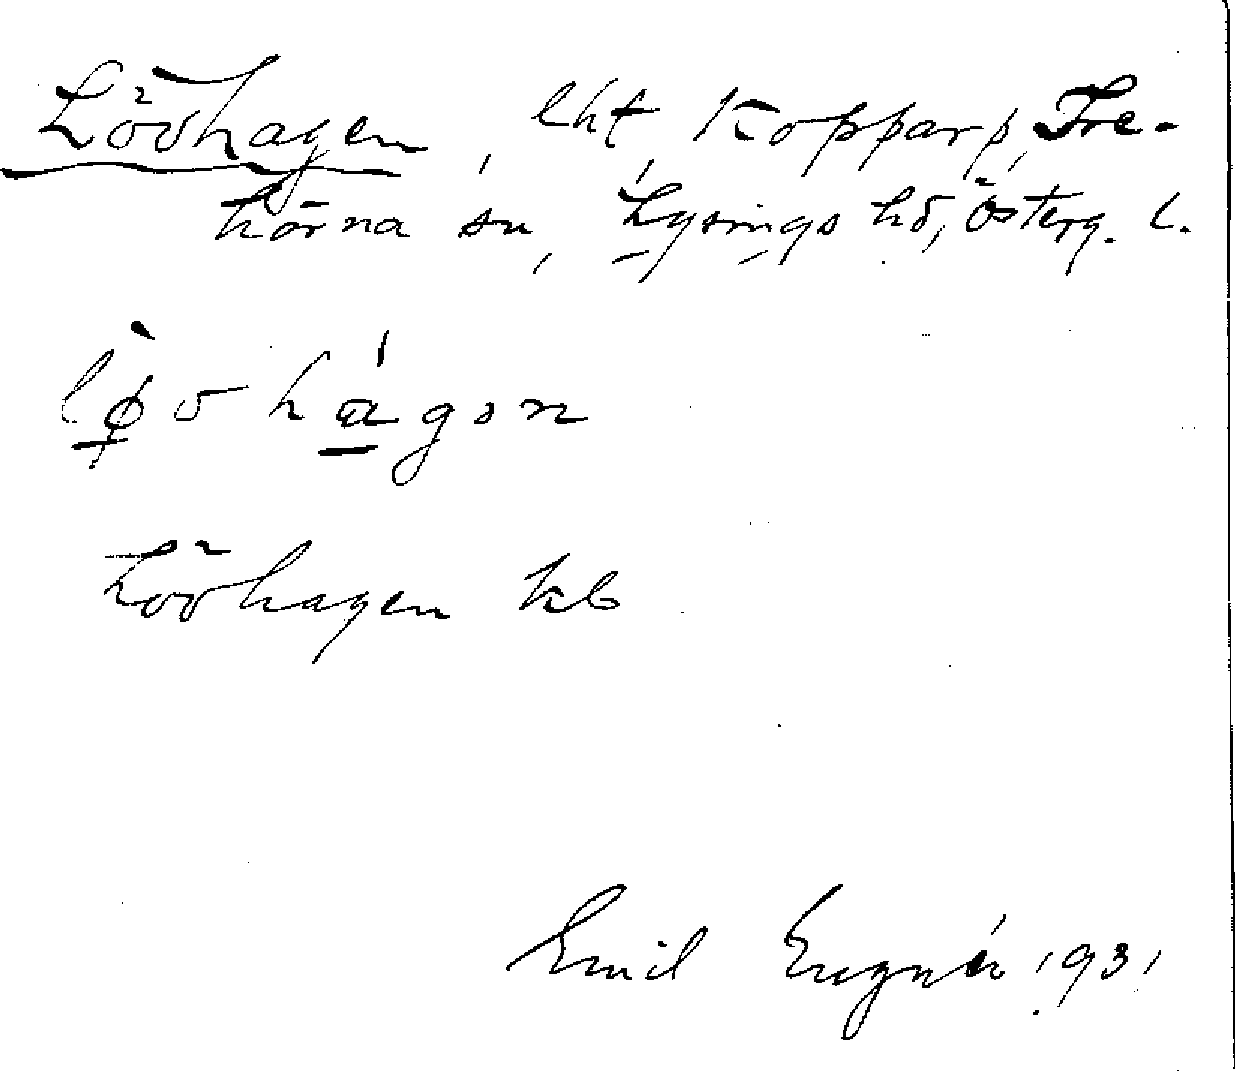 Lövhagen, lht Kopparp, Tre-
hörna sn, Lysings hd, Österg. l.
lø̀vhágən
Lövhagen kb
Emil Engnér 1931